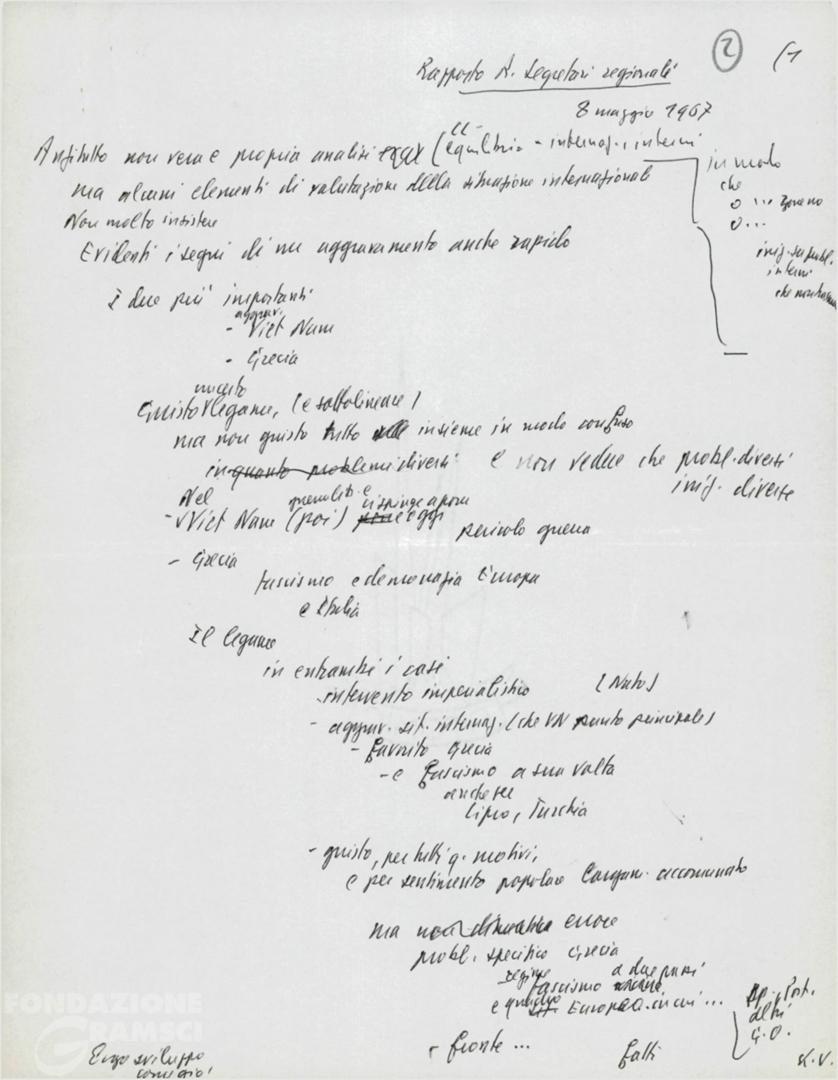 2 (1
Rapporto A. Segretari regionali
8 maggio 1967
Anzitutto non vera e propria analisi ( equilibrio - internaz. interni
ma alcuni elementi di valutazione della situazione internazional
Non molto insistere
Evidenti i segni di un aggravamento anche rapido
in modo
che
o ...
o ...
iniz. su probl.
interni
che
I due più importanti
aggrav.
- Viet Nam
- Grecia
Giusto legame, (e sottolineare)
ma non giusto tutto insieme in modo confuso
in quanto problemi diversi e non vedere che probl. diversi
iniz. diverse
Nel
- Viet Nam (poi) e oggi
pericolo guerra
- Grecia
fascismo e democrazia Europa
e Italia
Il legame
in entrambi i casi
intervento imperialistico (Nato)
- aggrav. sit. internaz. (che VN punto principale)
- favorito Grecia
- e fascismo a sua volta
anche se
Cipro, Turchia
- giusto, per tutti q. motivi,
e per sentimento popolare accomunato
ma non errore
probl. specifico Grecia
regime a due passi
fascismo
e Europa in cui ...
Sp., Port.
altri
G.O.
- fronte ... fatti
sviluppo
FONDAZIONE
GRAMSCI